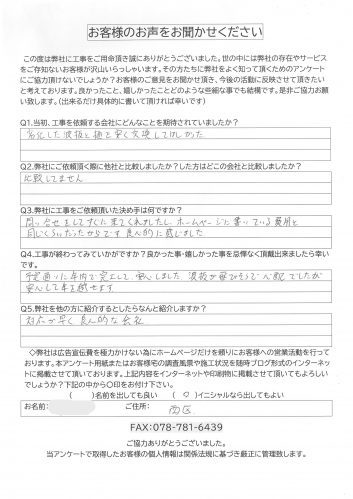 お客様のお声をお聞かせください
この度は弊社に工事をご用命頂き誠にありがとうございました。世の中には弊社の存在やサービス
をご存知ないお客様が沢山いらっしゃいます。その方たちに弊社をよく知って頂くためのアンケート
にご協力頂けないでしょうか？お客様のご意見をお聞かせ頂き、今後の活動に反映させて頂きたい
と考えております。良かったこと、嬉しかったことどのような些細な事でも結構です。是非ご協力お願
い致します。（出来るだけ具体的に書いて頂ければ幸いです）
Q1.当初、工事を依頼する会社にどんなことを期待されていましたか？
劣化した波板と樋を早く交換してほしかった
Q2.弊社にご依頼頂く際に他社と比較しましたか？した方はどこの会社と比較しましたか？
比較してません
Q3.弊社に工事をご依頼頂いた決め手は何ですか？
問い合せをしてすぐに来てくれましたし、ホームページに書いている費用と
同じくらいだったからです 良心的に感じました
Q4.工事が終わってみていかがですか？良かった事・嬉しかった事を忌憚なく頂戴出来ましたら幸い
です。
予定通りに年内で完工して安心しました 波板が飛びそうで心配でしたが
安心して年を越せます
Q5.弊社を他の方に紹介するとしたらなんと紹介しますか？
対応が早く良心的な会社
◇弊社は広告宣伝費を極力かけない為にホームページだけを頼りにお客様への営業活動を行って
おります。本アンケート用紙またはお客様宅の調査風景や施工状況を随時ブログ形式のインターネッ
トに掲載させて頂いております。上記内容をインターネットや印刷物に掲載させて頂いてもよろしい
でしょうか？下記の中から〇印をお付け下さい。
（　）名前を出しても良い　（〇）イニシャルなら出してもよい
お名前:　ご住所: 西区
FAX:078-781-6439
ご協力ありがとうございました。
当アンケートで取得したお客様の個人情報は関係法規に基づき厳正に管理致します。